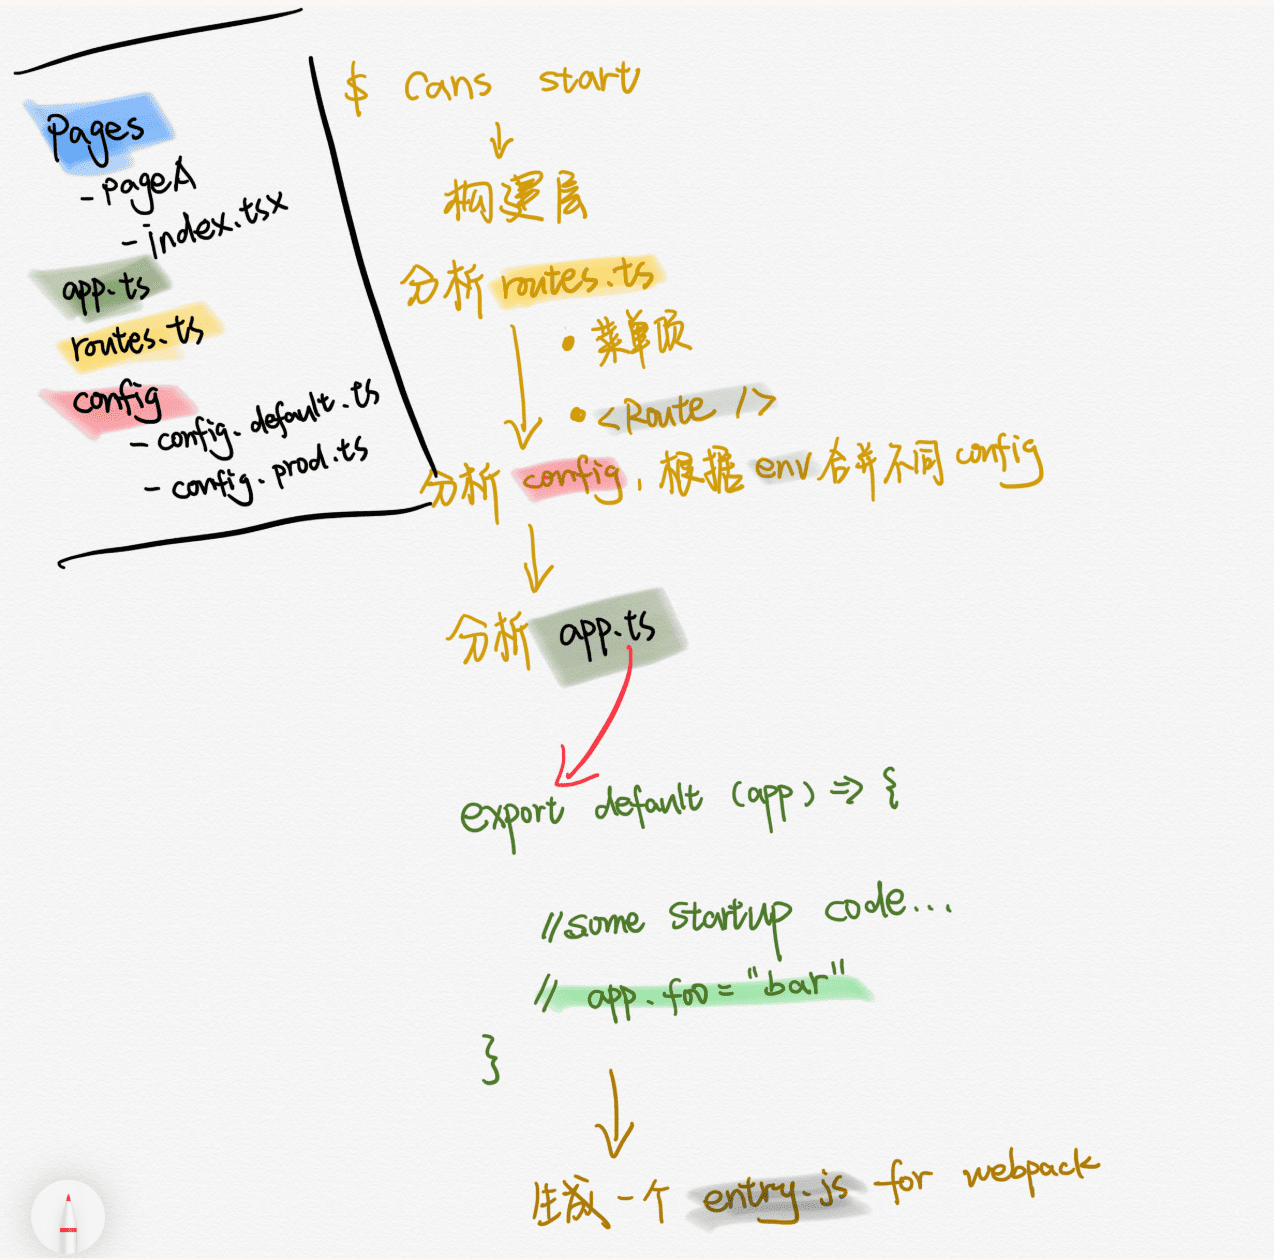 Pages
- PageA
- index.tsx
app.ts
routes.ts
config
- config.default.ts
- config.prod.ts
$ Cans start
构建层
分析 routes.ts
• 菜单项
• <Route />
分析 config, 根据 env 合并不同 config
分析 app.ts
export default (app) => {
//some startup code...
// app.foo="bar"
}
生成一个 entry.js for webpack